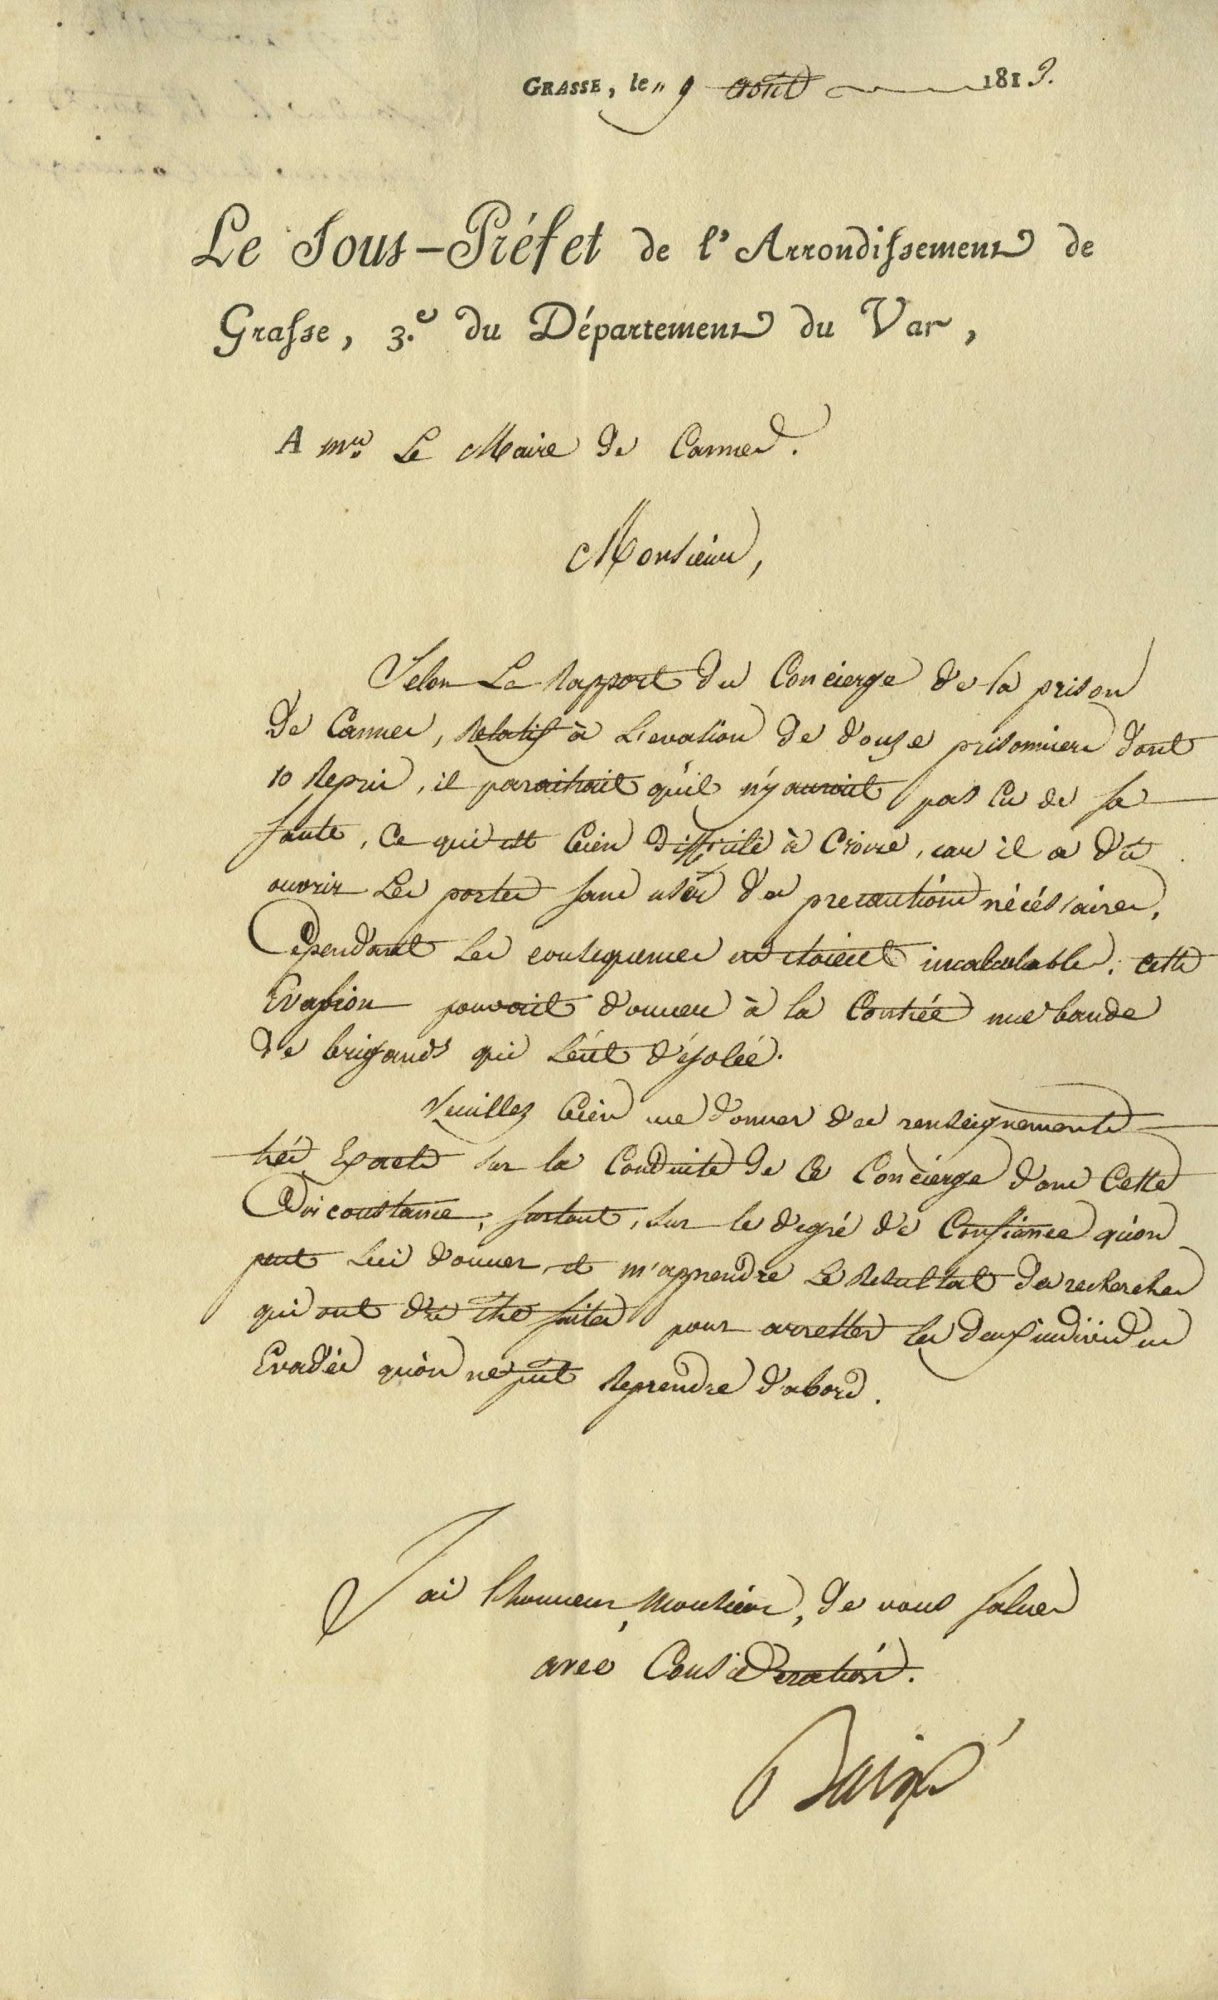 GRASSE, le 9 août 1819.
Le Sous-Préfet de l'Arrondissement de
Grasse, 3.e du Département du Var,
A Mr. Le Maire de Cannes.
Monsieur,
Selon Le Rapport du Concierge de la prison
de Cannes, Relatif à L'evasion de douze prisonniers dont
10 Repris, il paraitrait qu'il n'y auroit pas Eu de sa
faute, Ce qui est bien difficile à Croire, car il a dû
ouvrir Les portes sans user des precautions nécéssaires,
Cependant Les consequences en étoient incalculables, cette
Evasion pouvoit donner à la Contrée une bande
de brigands qui L'eût désolée.
Veuillez bien me donner des renseignements
très Exacts sur la Conduite de Ce Concierge dans Cette
Circonstance, surtout, sur le dégré de Confiance qu'on
peut Lui donner, et m'apprendre Le Resultat des recherches
qui ont dû être faites pour arretter les deux individus
Evadés qu'on ne put Reprendre d'abord.
J'ai l'honneur, Monsieur, de vous saluer
avec Consideration.